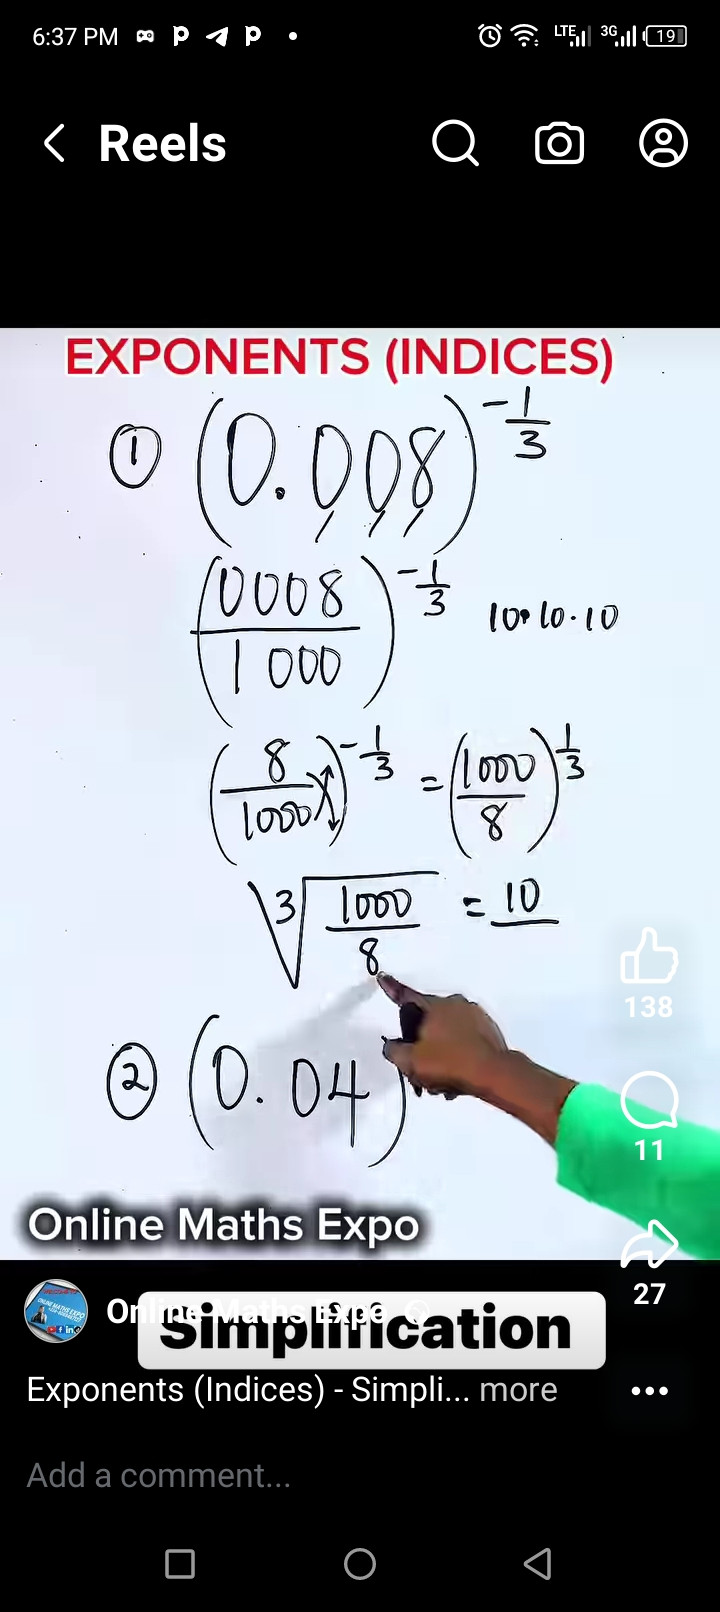 6:37 PM
LTE 3G 19
Reels
EXPONENTS (INDICES)
① (0.008)^-1/3
(0008/1000)^-1/3 10•10·10
(8/1000)^-1/3 = (1000/8)^1/3
∛(1000/8) = 10
138
② (0.04)
11
Online Maths Expo
27
Online Maths Expo
Simplification
Exponents (Indices) - Simpli... more
Add a comment...